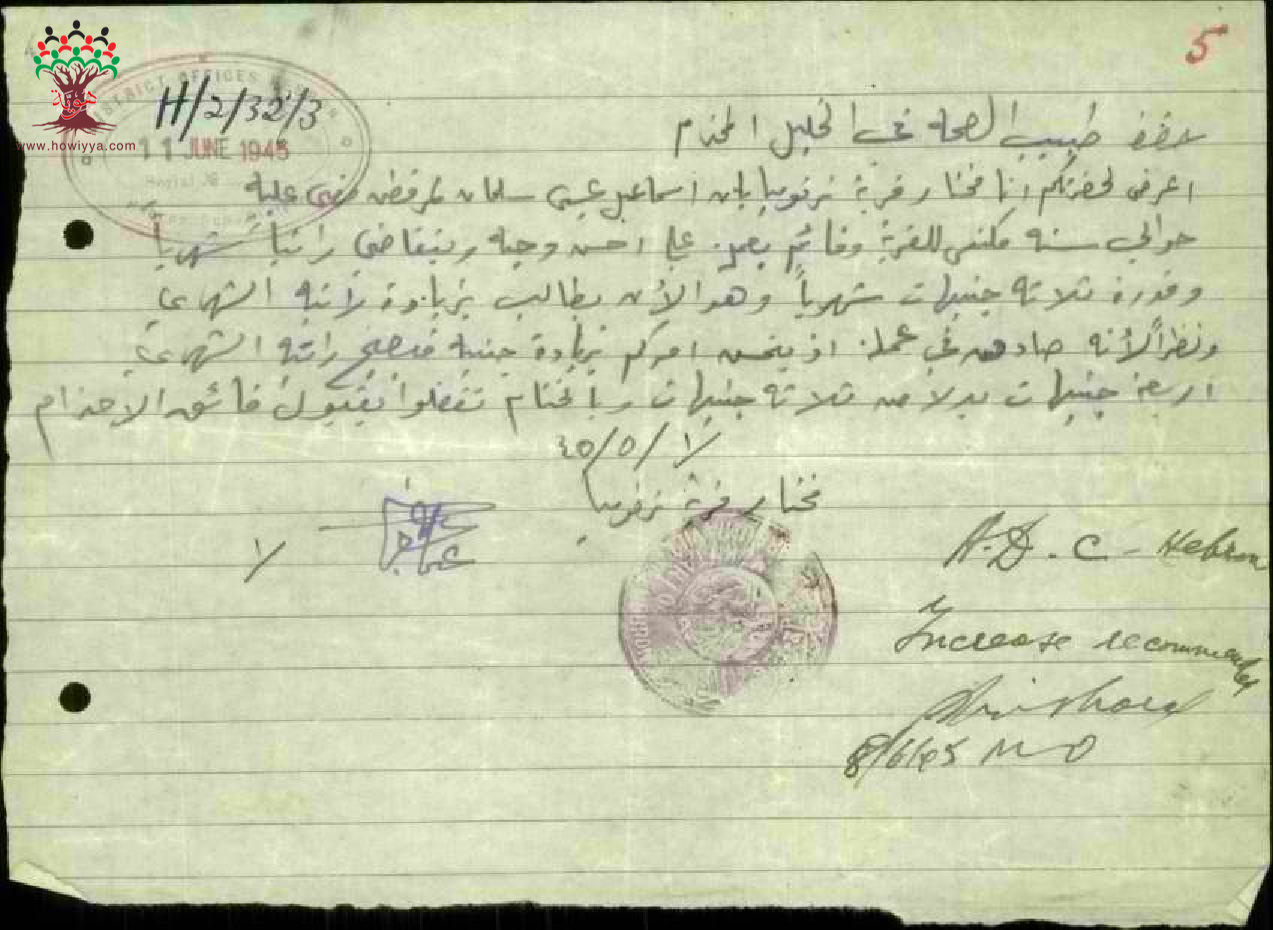 5
DISTRICT OFFICES
H/2/32/3
11 JUNE 1945
www.howiyya.com
حضرة طبيب الصحة في الخليل المحترم
اعرض لحضرتكم انا مختار قرية ترقوميا بان اسماعيل عيسى سلمان مضى عليه
حوالي سنه مكنس للقرية وقائم بعمله على احسن وجه ويتقاضى راتباً شهرياً
وقدره ثلاثه جنيهات شهرياً وهو الأن يطالب بزيادة راتبه الشهري
ونظراً لأنه صادق في عمله اذ يلتمس امركم بزيادة جنيه فيصبح راتبه الشهري
اربعة جنيهات بدلا من ثلاثه جنيهات وبالختام تفضلوا بقبول فائق الاحترام
مختار قرية ترقوميا
A.D.C - Hebron
Increase recommended
8/6/45 M O